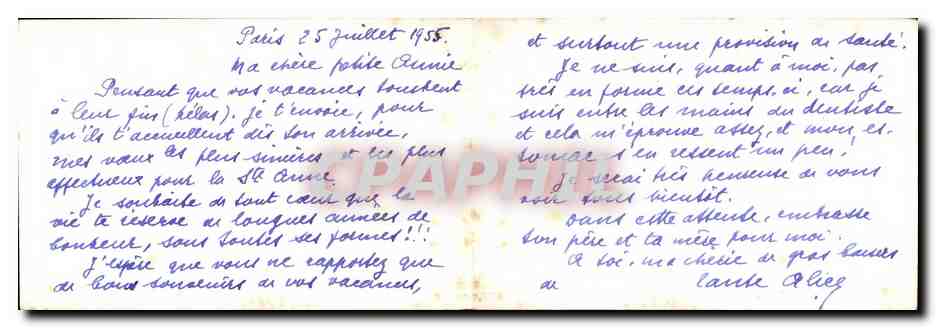 Paris 25 Juillet 1955.
Ma chère petite Annie
Pensant que vos vacances touchent
à leur fin (hélas). je t'envoie, pour
qu'ils t'accueillent dès ton arrivée,
mes vœux les plus sincères et les plus
affectueux pour la Ste Anne.
Je souhaite de tout cœur que la
vie te réserve de longues années de
bonheur, sous toutes ses formes!!!
J'espère que vous ne rapportez que
de bons souvenirs de vos vacances,
et surtout une provision de santé.
Je ne suis, quant à moi, pas
très en forme ces temps-ci, car je
suis entre les mains du dentiste
et cela m'éprouve assez, et mon es-
tomac s'en ressent un peu!
Je serai très heureuse de vous
voir tous bientôt.
Dans cette attente, embrasse
ton père et ta mère pour moi.
A toi, ma chérie de gros baisers
de Tante Alice
CPAPHIL